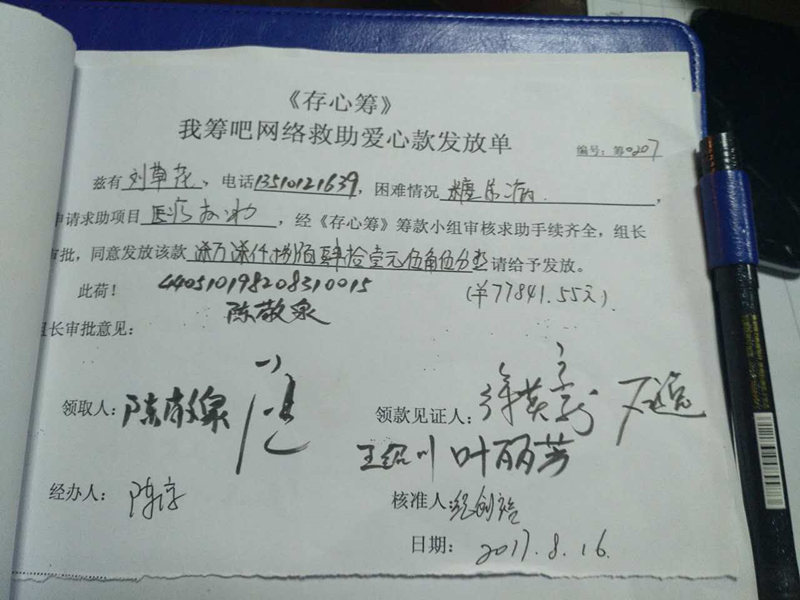 《存心筹》
我筹吧网络救助爱心款发放单
编号：筹0207
兹有刘草花，电话13510121639，困难情况糖尿病，
申请求助项目医疗救助，经《存心筹》筹款小组审核求助手续齐全，组长
审批，同意发放该款柒万柒仟捌佰肆拾壹元伍角伍分整请给予发放。
此荷！ 440510198208310015 (￥77841.55元)
陈敬泉
组长审批意见：
领取人：陈敬泉 领款见证人：
王绍川 叶丽芳
经办人： 核准人：
日期：2017.8.16.